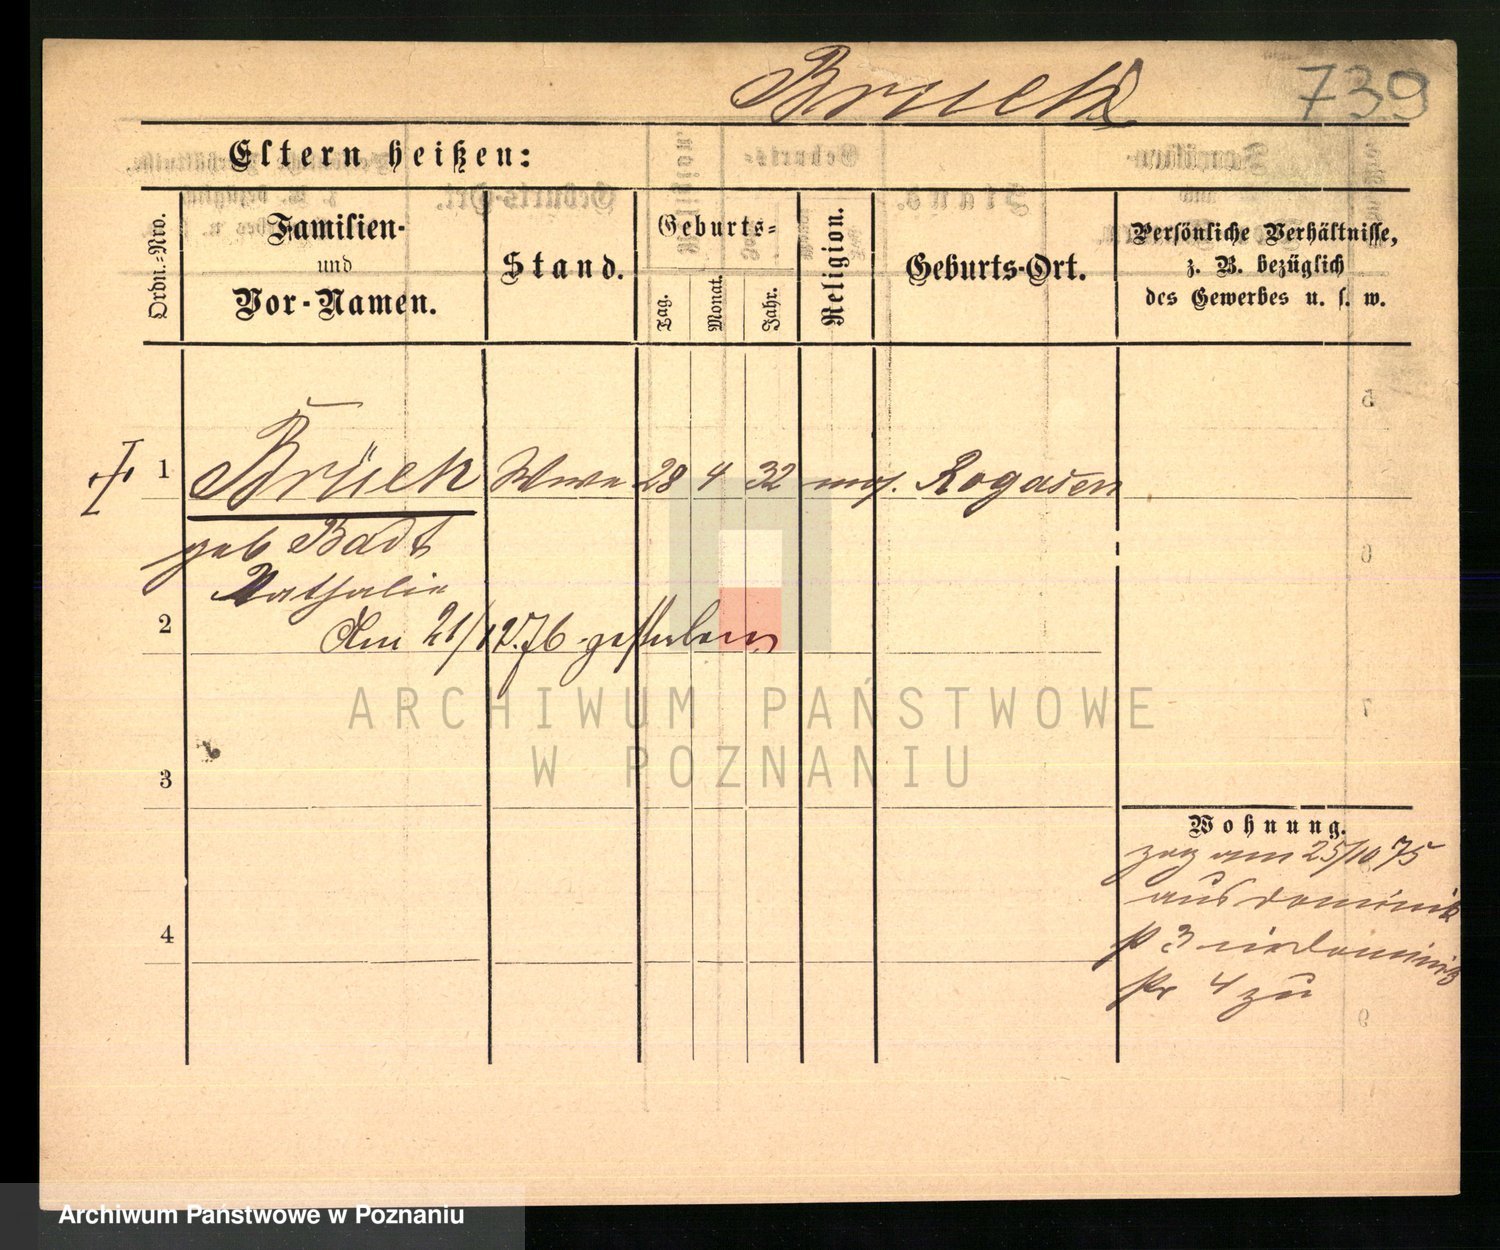 Brueck 739
Eltern heißen:
Ordn.-Nro.
Familien-
und
Vor-Namen.
Stand.
Geburts-
Tag.
Monat.
Jahr.
Religion.
Geburts-Ort.
Persönliche Verhältnisse,
z. B. bezüglich
des Gewerbes u. s. w.
1 Brück Wwe 28 4 32 mos. Rogasen
geb Badt
Nathalie
2 Am 21/12.76 gestorben
3
4
Wohnung.
zog am 25/10 75
aus Dominik
3
4 zu
ARCHIWUM PAŃSTWOWE
W POZNANIU
Archiwum Państwowe w Poznaniu